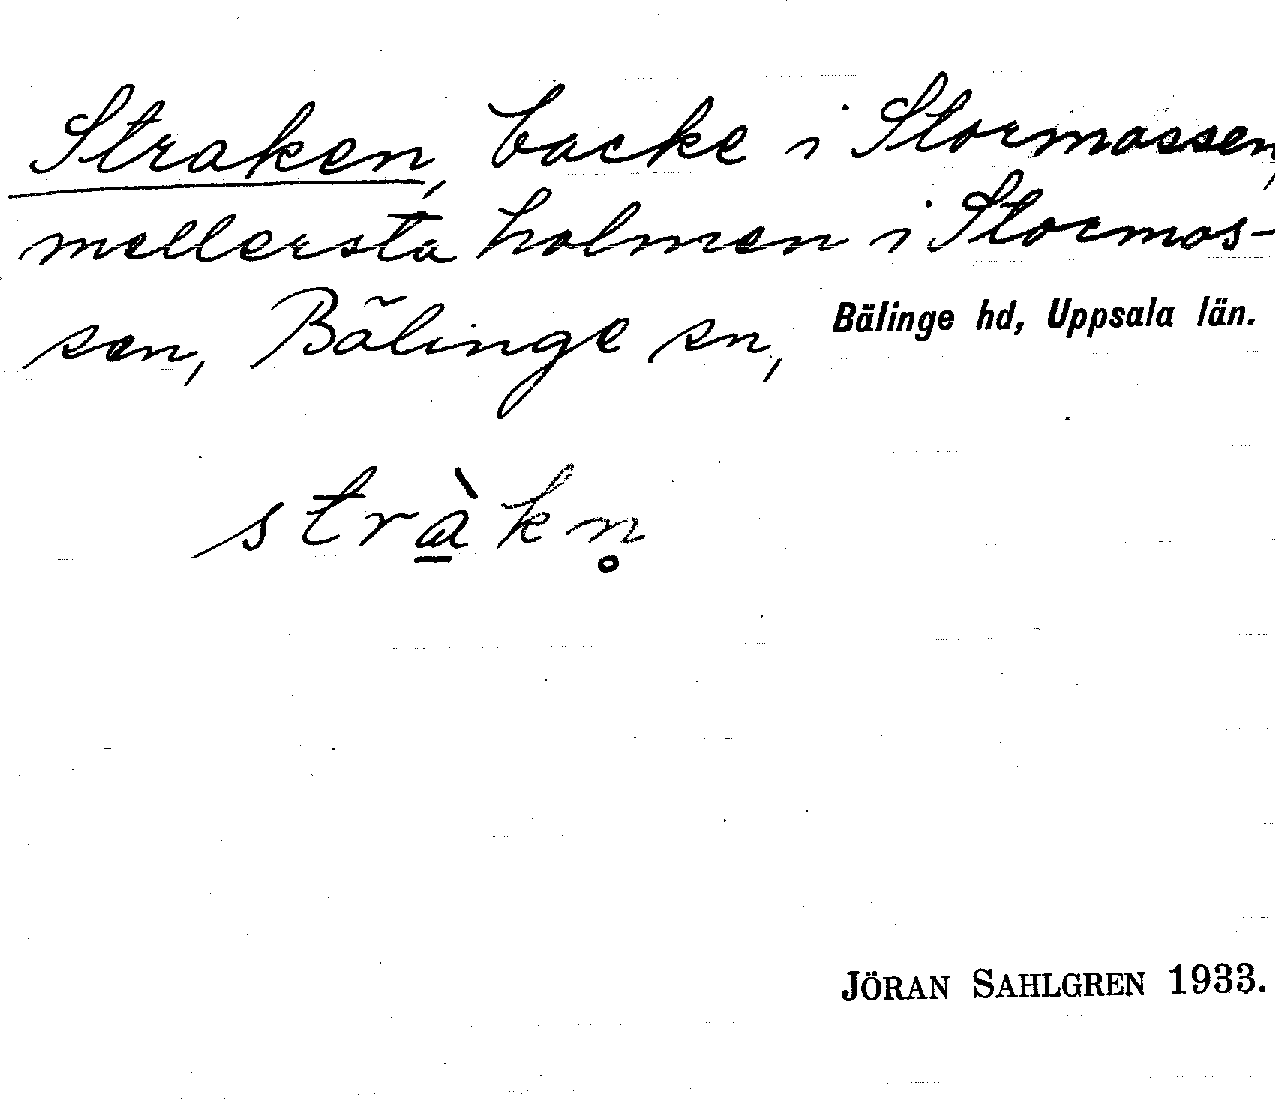 Straken, backe i Stormossen,
mellersta holmen i Stormos-
sen, Bälinge sn, Bälinge hd, Uppsala län.
stràkn̥
JÖRAN SAHLGREN 1933.